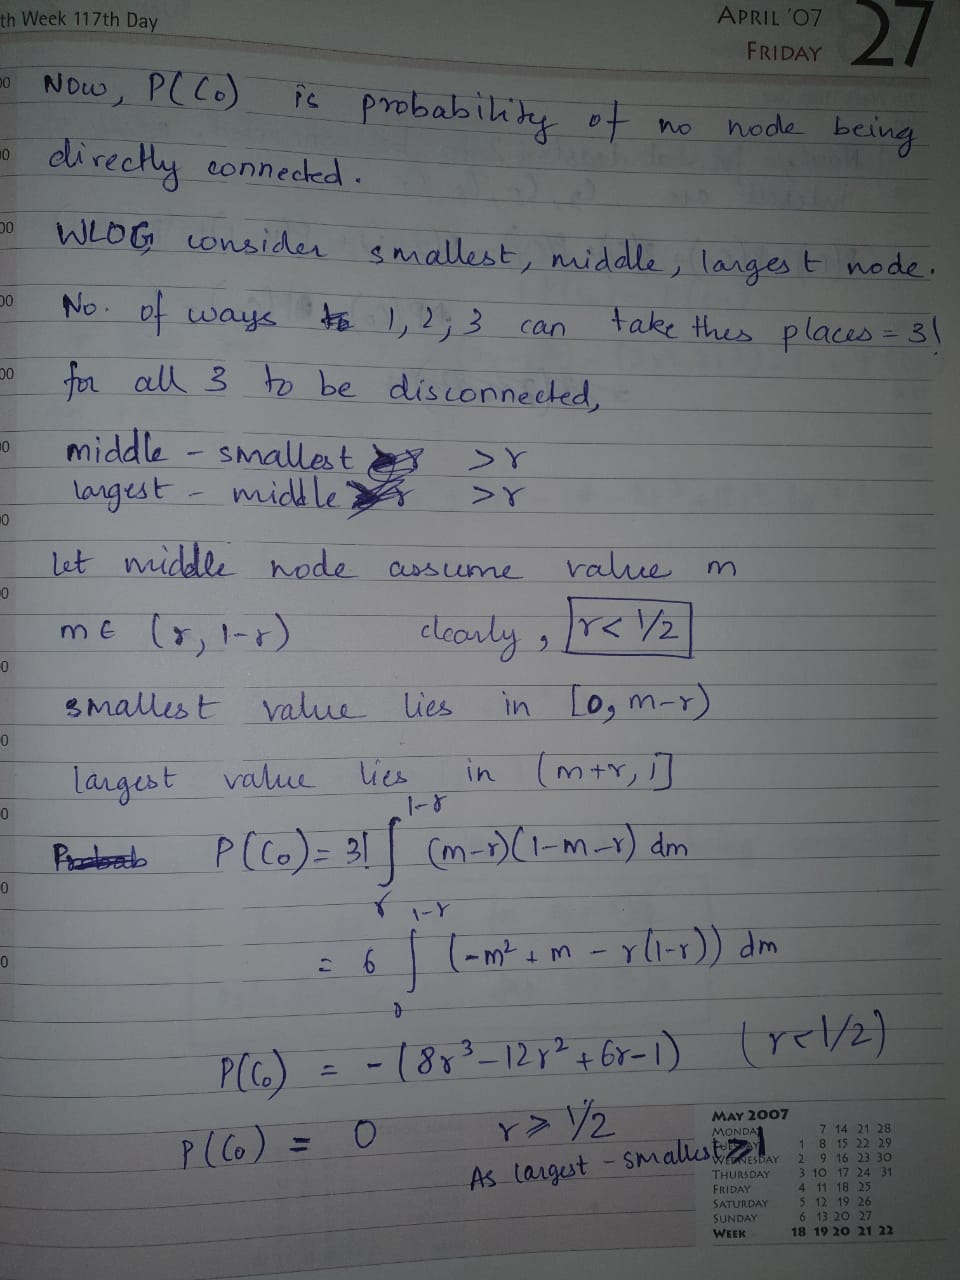 th Week 117th Day
APRIL '07
FRIDAY
27
Now, P(C₀) is probability of no node being
directly connected.
WLOG, consider smallest, middle, largest node.
No. of ways 1, 2, 3 can take thes places = 3!
for all 3 to be disconnected,
middle - smallest > r
largest - middle > r
Let middle node assume value m
m ∈ (r, 1-r) clearly, r < 1/2
smallest value lies in [0, m-r)
largest value lies in (m+r, 1]
P(C₀) = 3! ∫ᵣ¹⁻ʳ (m-r)(1-m-r) dm
= 6 ∫ᵣ¹⁻ʳ (-m² + m - r(1-r)) dm
P(C₀) = -(8r³ - 12r² + 6r - 1) (r < 1/2)
P(C₀) = 0 r ⩾ 1/2
As largest - smallest ⩾ 1
MAY 2007
MONDAY 7 14 21 28
TUESDAY 1 8 15 22 29
WEDNESDAY 2 9 16 23 30
THURSDAY 3 10 17 24 31
FRIDAY 4 11 18 25
SATURDAY 5 12 19 26
SUNDAY 6 13 20 27
WEEK 18 19 20 21 22